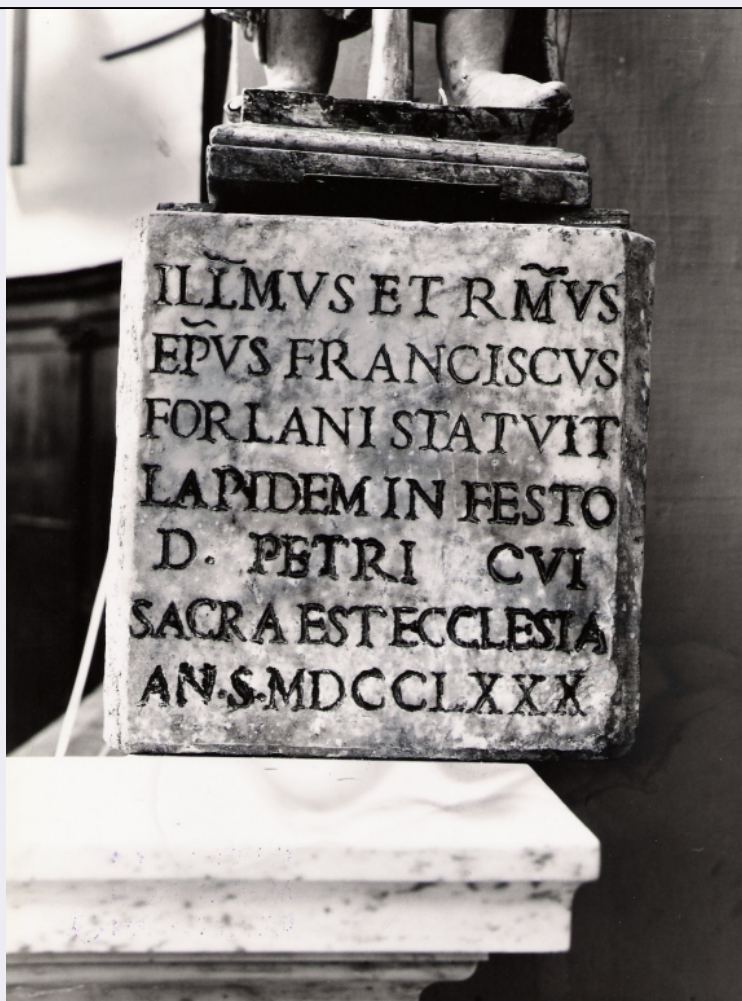 ILL̃MVS ET RM̃VS
EP̃VS FRANCISCVS
FORLANI STATVIT
LAPIDEM IN FESTO
D. PETRI CVI
SACRA EST ECCLESIA
AN.S.MDCCLXXX